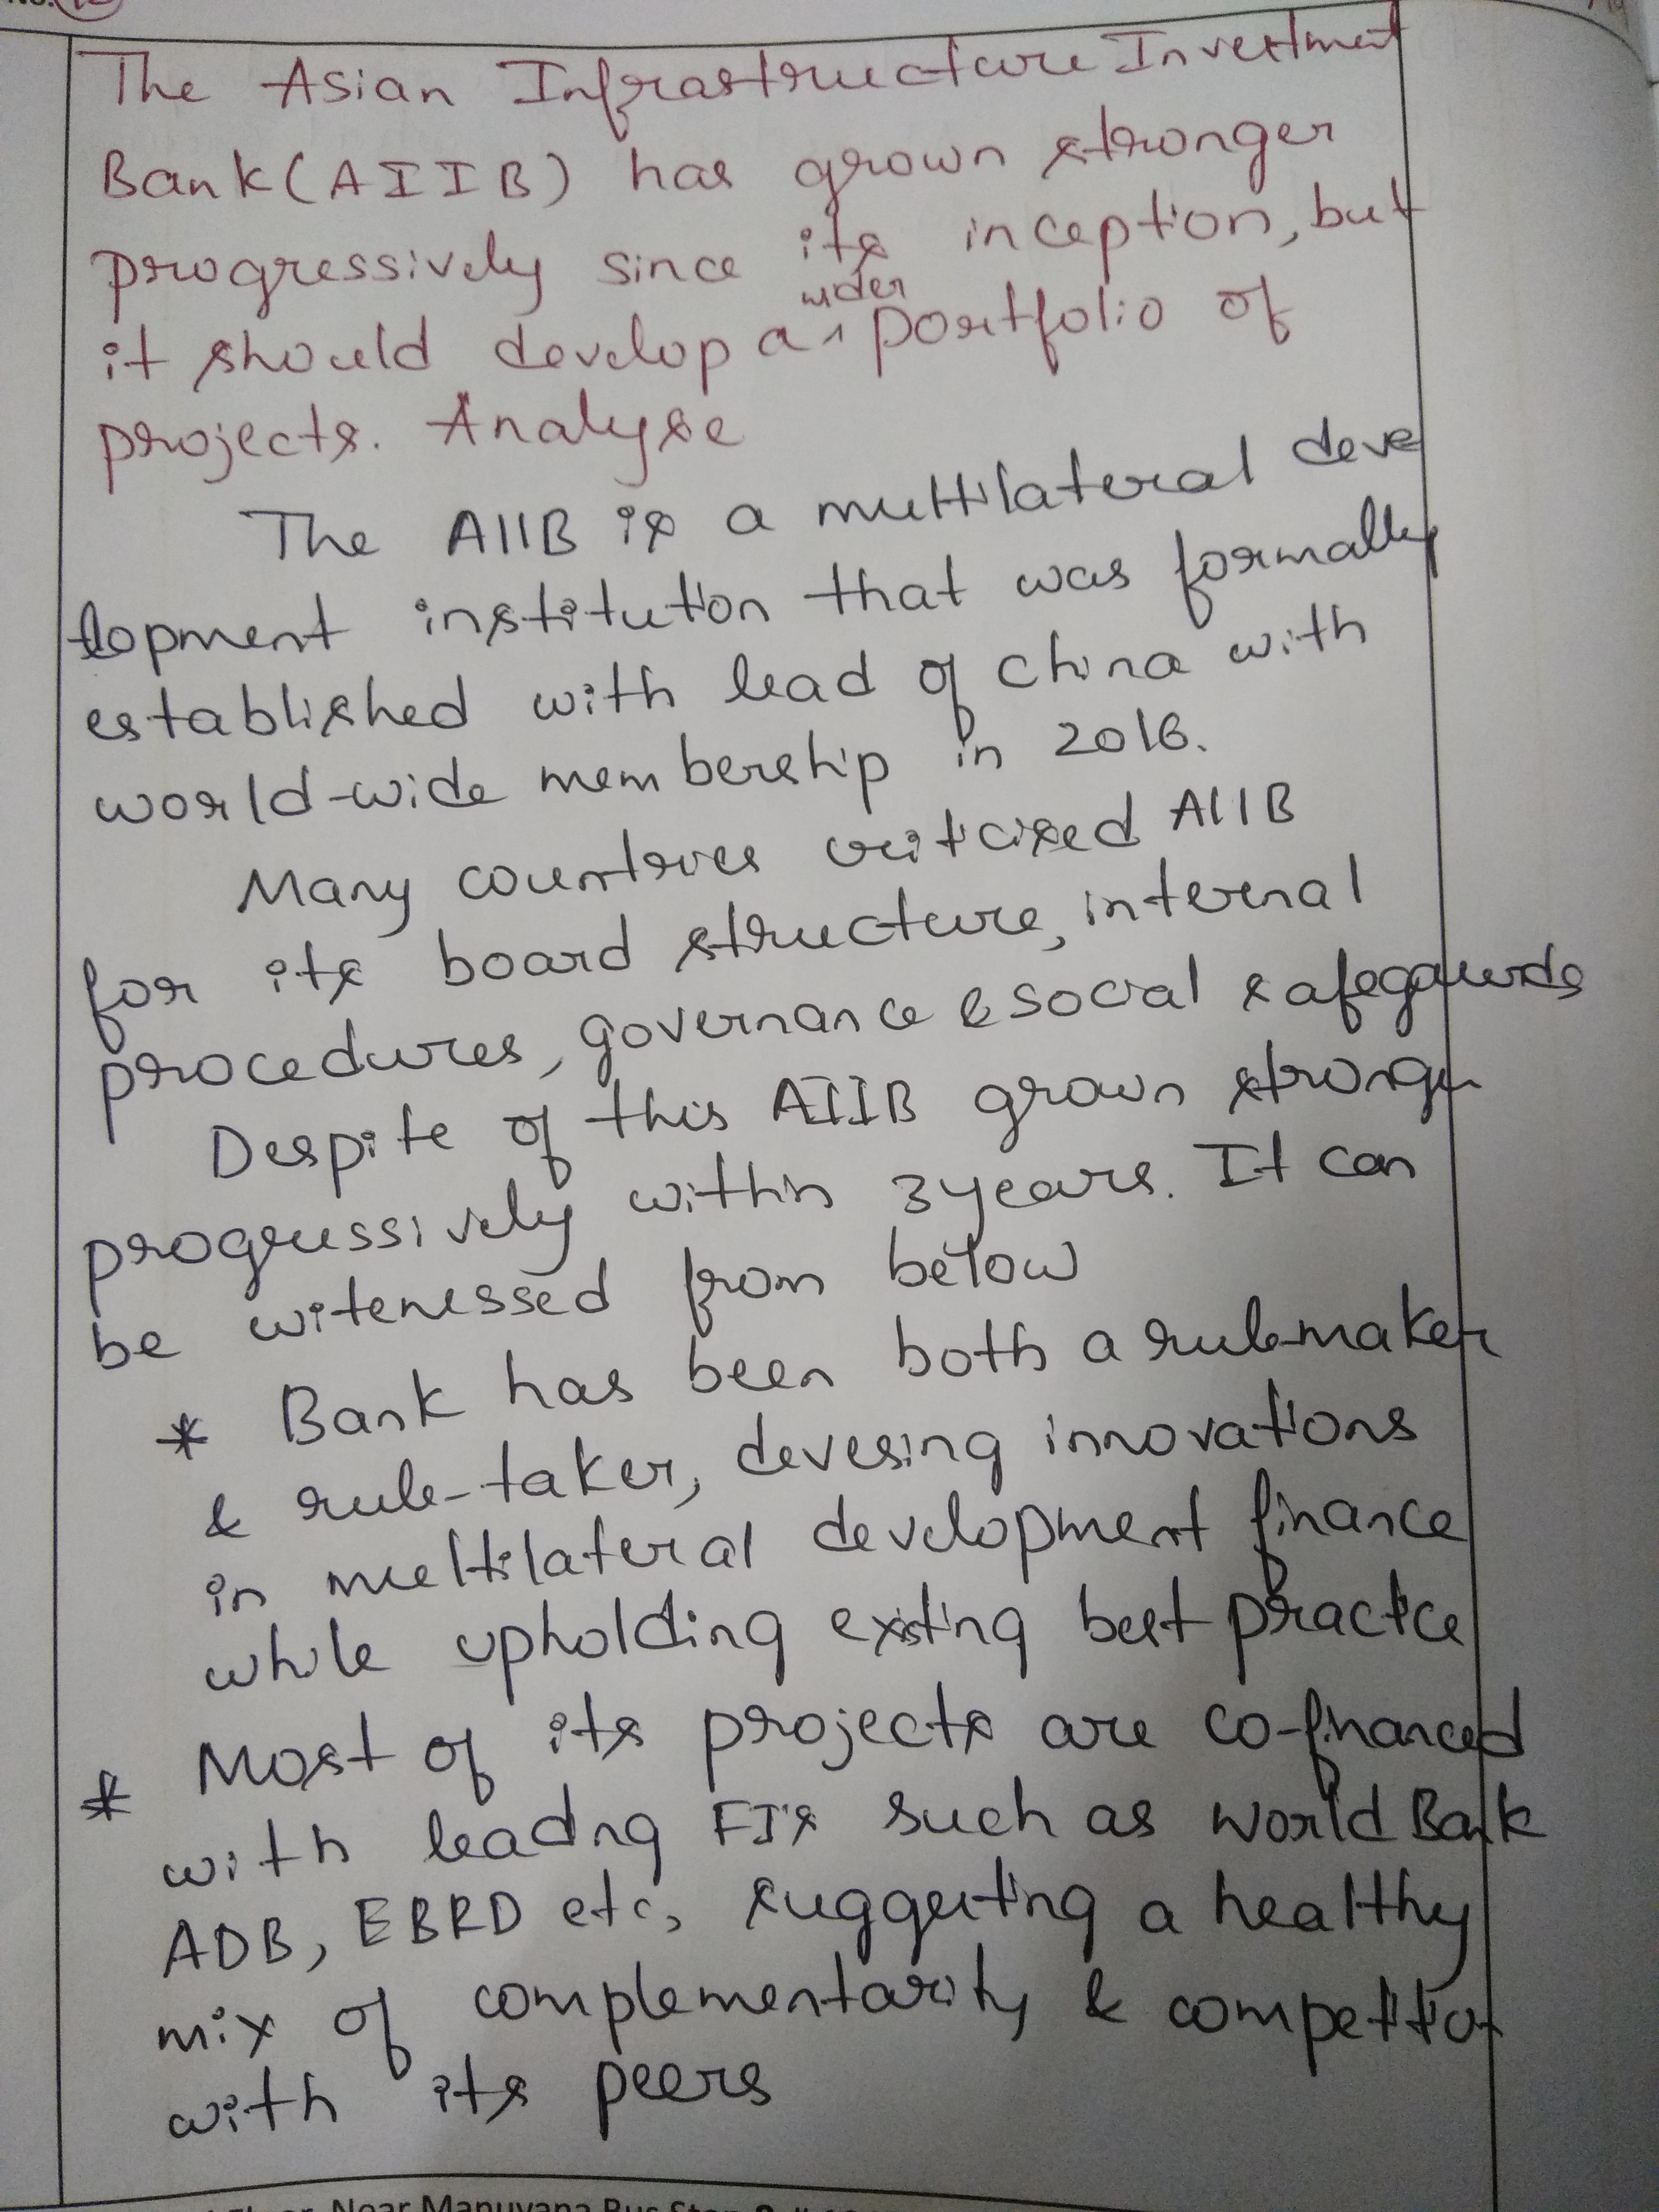 The Asian Infrastructure Investment
Bank (AIIB) has grown stronger
progressively since its inception, but
wider
it should develop a ^ portfolio of
projects. Analyse
The AIIB is a multilateral deve
lopment institution that was formally
established with lead of china with
world-wide membership in 2016.
Many countries criticised AIIB
for its board structure, internal
procedures, governance & social safegaurds
Despite of this AIIB grown stronger
progressively within 3 years. It can
be witenessed from below
* Bank has been both a rule-maker
& rule-taker, devesing innovations
in multilateral development finance
while upholding existing best practice
* Most of its projects are co-financed
with leading FI's such as World Bank
ADB, EBRD etc, suggesting a healthy
mix of complementarity & competition
with its peers
Near Manuvana Bus Stop